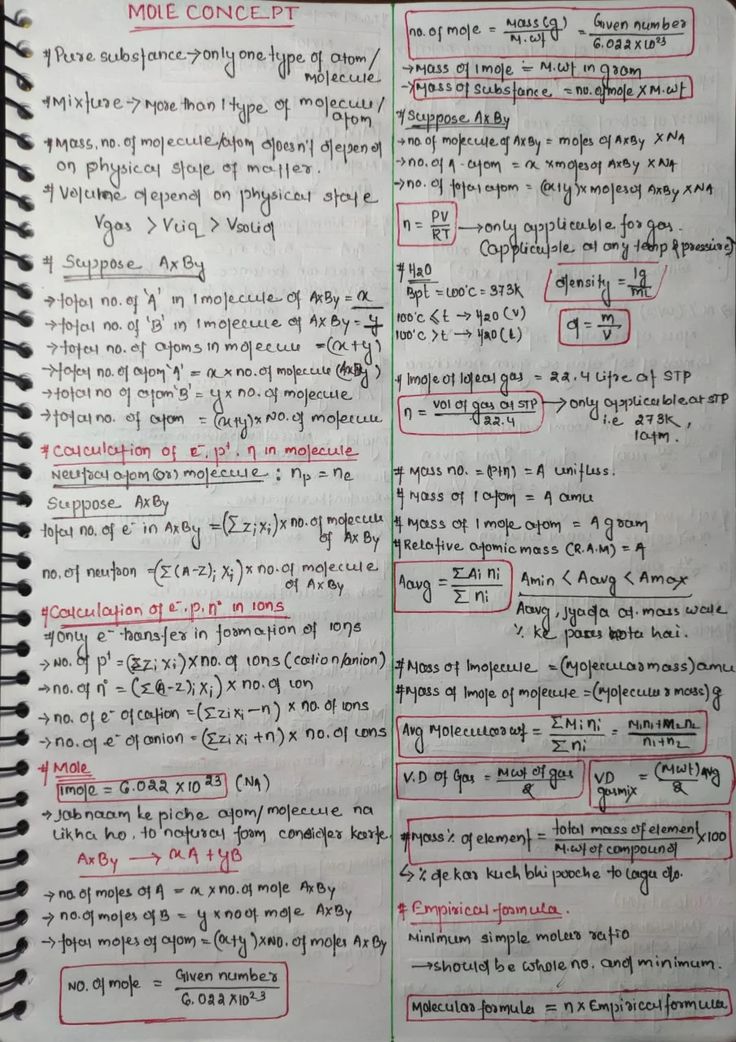 MOLE CONCEPT
# Pure substance → only one type of atom/
molecule
# Mixture → More than 1 type of molecule/
atom
# Mass, no. of molecule/atom doesn't depend
on physical state of matter.
# Volume depend on physical state
Vgas > Vliq > Vsolid
# Suppose AxBy
→ total no. of 'A' in 1 molecule of AxBy = x
→ total no. of 'B' in 1 molecule of AxBy = y
→ total no. of atoms in molecule = (x+y)
→ total no. of atom 'A' = x × no. of molecule (AxBy)
→ total no of atom 'B' = y × no. of molecule
→ total no. of atom = (x+y) × No. of molecule
# Calculation of e⁻, p⁺, n in molecule
Neutral atom (or) molecule : np = ne
Suppose AxBy
total no. of e⁻ in AxBy = (Σ Zi Xi) × no. of molecule
of AxBy
no. of neutron = (Σ (A-Z)i Xi) × no. of molecule
of AxBy
# Calculation of e⁻, p, n° in Ions
# Only e⁻ transfer in formation of ions
→ No. of p⁺ = (Σ Zi Xi) × no. of ions (cation/anion)
→ no. of n° = (Σ (A-Z)i Xi) × no. of ion
→ no. of e⁻ of cation = (Σ Zi Xi - n) × no. of ions
→ no. of e⁻ of anion = (Σ Zi Xi + n) × no. of ions
# Mole
1mole = 6.022 × 10²³ (NA)
→ Jab naam ke piche atom/molecule na
likha ho, to natural form consider karte
AxBy → xA + yB
→ no. of moles of A = x × no. of mole AxBy
→ no. of moles of B = y × no of mole AxBy
→ total moles of atom = (x+y) × No. of moles AxBy
No. of mole = Given number / 6.022 × 10²³
no. of mole = Mass(g) / M.wt = Given number / 6.022 × 10²³
→ Mass of 1 mole = M.wt in gram
→ Mass of substance = no. of mole × M.wt
# Suppose AxBy
→ no. of molecule of AxBy = moles of AxBy × NA
→ no. of A-atom = x × moles of AxBy × NA
→ no. of total atom = (x+y) × moles of AxBy × NA
n = PV / RT → only applicable for gas.
(applicable at any temp & pressure)
# H2O
Bpt = 100°C = 373K
density = 1g / mL
100°C ≤ t → H2O (v)
100°C > t → H2O (l)
d = m / v
# 1mole of Ideal gas = 22.4 Litre at STP
n = vol of gas at STP / 22.4 → only applicable at STP
i.e 273K,
1atm.
# Mass no. = (P+n) = A unitless.
# Mass of 1 atom = A amu
# Mass of 1 mole atom = A gram
# Relative atomic mass (R.A.M) = A
Aavg = Σ Ai ni / Σ ni Amin < Aavg < Amax
Aavg, Jyada at. mass wale
% ke paas hota hai.
# Mass of 1molecule = (Molecular mass) amu
# Mass of 1mole of molecule = (Molecular mass) g
Avg Molecular wt = Σ Mi ni / Σ ni = M1n1 + M2n2 / n1 + n2
V.D Of Gas = Mwt of gas / 2 VD gas mix = (Mwt) Avg / 2
# Mass % of element = total mass of element / M.wt of compound × 100
↳ % dekar kuch bhi pooche to lagu do.
# Empirical formula.
Minimum simple molar ratio
→ should be whole no. and minimum.
Molecular formula = n × Empirical formula